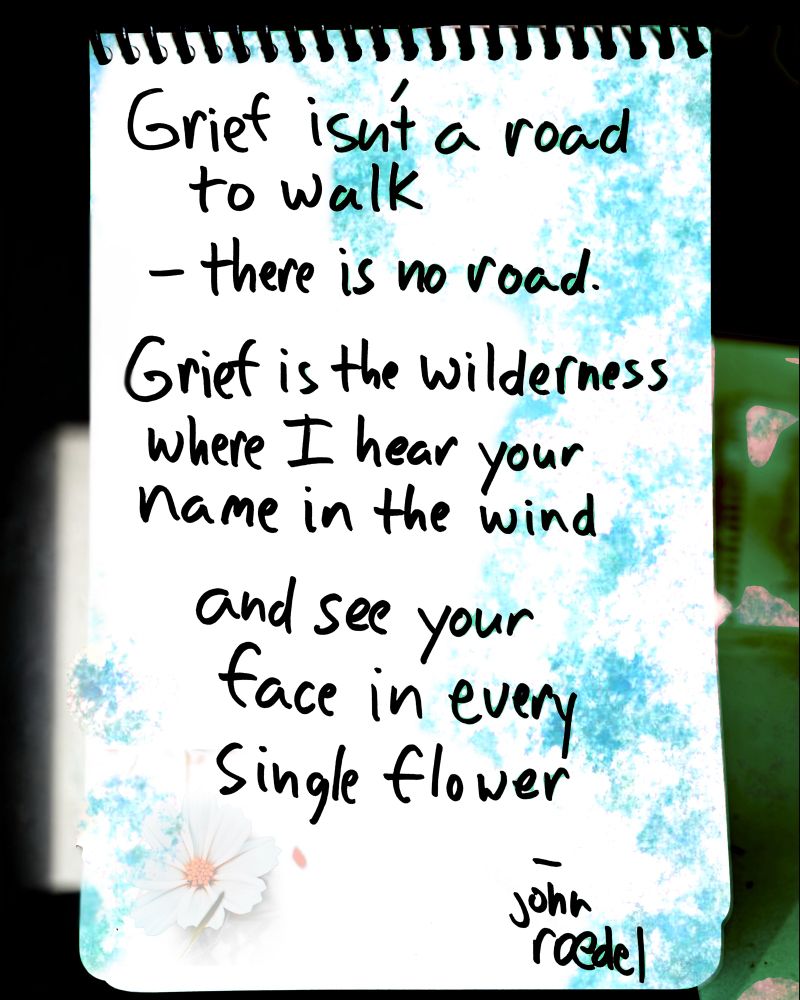 Grief isn't a road
to walk
– there is no road.
Grief is the wilderness
where I hear your
name in the wind
and see your
face in every
single flower
–
john
roedel